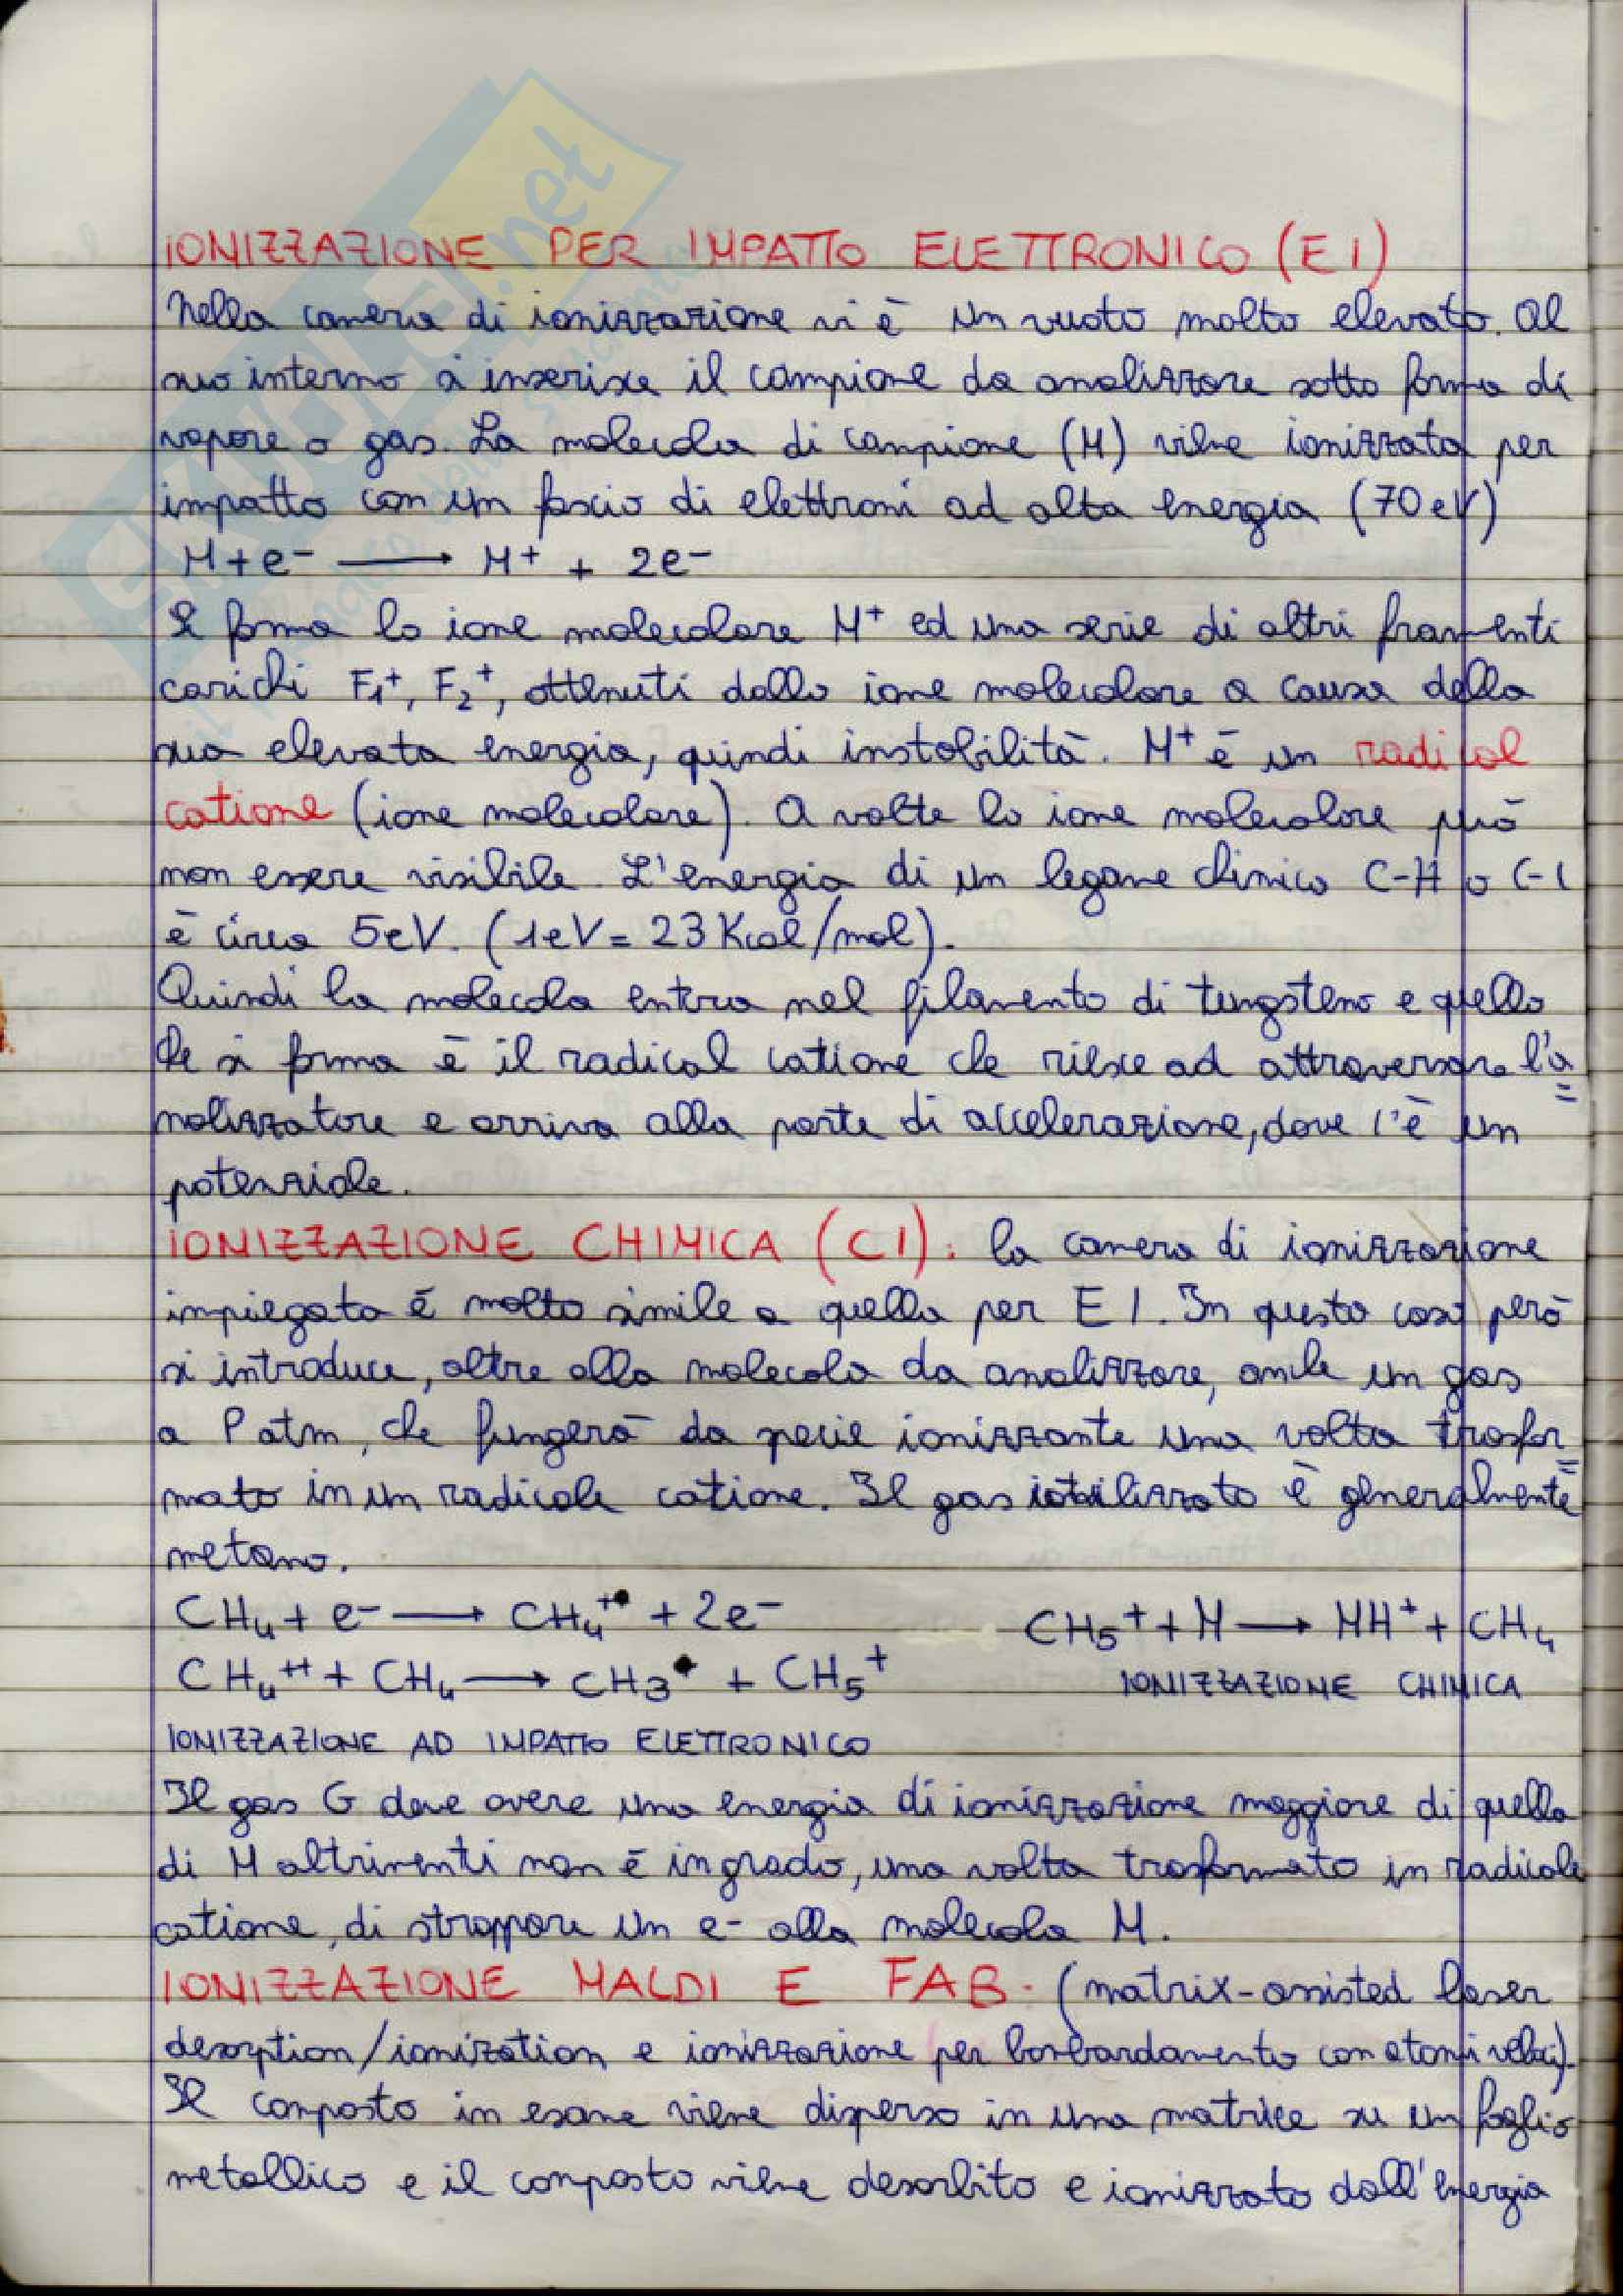 IONIZZAZIONE PER IMPATTO ELETTRONICO (EI)
Nella camera di ionizzazione vi è un vuoto molto elevato. Al
suo interno si inserisce il campione da analizzare sotto forma di
vapore o gas. La molecola di campione (M) viene ionizzata per
impatto con un fascio di elettroni ad alta energia (70 eV)
M + e⁻ ⟶ M⁺ + 2e⁻
Si forma lo ione molecolare M⁺ ed una serie di altri frammenti
carichi F₁⁺, F₂⁺, ottenuti dallo ione molecolare a causa della
sua elevata energia, quindi instabilità. M⁺ è un radical
catione (ione molecolare). A volte lo ione molecolare può
non essere visibile. L'energia di un legame chimico C-H o C-C
è circa 5eV. (1eV = 23 Kcal/mol).
Quindi la molecola entra nel filamento di tungsteno e quello
che si forma è il radical catione che riesce ad attraversare l'a=
nalizzatore e arriva alla parte di accelerazione, dove c'è un
potenziale.
IONIZZAZIONE CHIMICA (CI): la camera di ionizzazione
impiegata è molto simile a quella per EI. In questo caso però
si introduce, oltre alla molecola da analizzare, anche un gas
a P atm, che fungerà da specie ionizzante una volta trasfor=
mato in un radicale catione. Il gas utilizzato è generalmente
metano.
CH₄ + e⁻ ⟶ CH₄⁺• + 2e⁻ CH₅⁺ + M ⟶ MH⁺ + CH₄
CH₄⁺⁺ + CH₄ ⟶ CH₃• + CH₅⁺ IONIZZAZIONE CHIMICA
IONIZZAZIONE AD IMPATTO ELETTRONICO
Il gas G deve avere una energia di ionizzazione maggiore di quella
di M altrimenti non è in grado, una volta trasformato in radicale
catione, di strappare un e⁻ alla molecola M.
IONIZZAZIONE MALDI E FAB. (matrix-assisted laser
desorption/ionization e ionizzazione per bombardamento con atomi veloci).
Il composto in esame viene disperso in una matrice su un foglio
metallico e il composto viene desorbito e ionizzato dall'energia